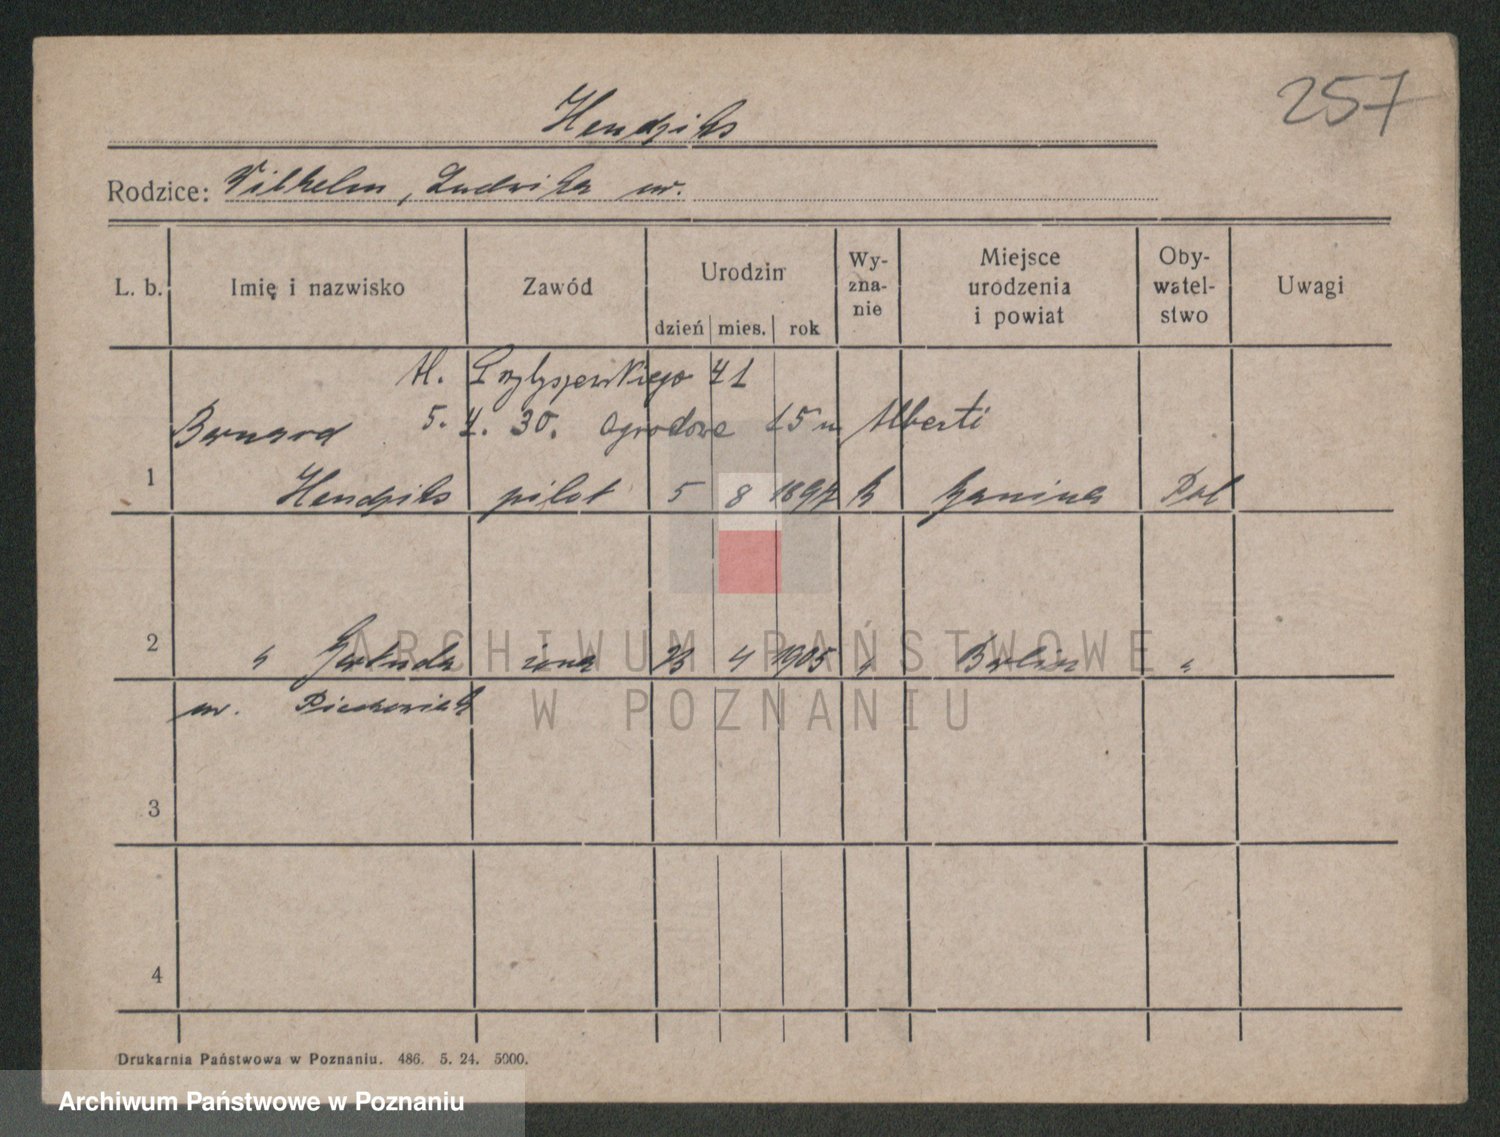 257
Hendziks
Rodzice: Wilhelm, Ludwika ur.
L. b. Imię i nazwisko Zawód Urodzin Wy-zna-nie Miejsce urodzenia i powiat Oby-watel-stwo Uwagi
dzień mies. rok
41
Bernard 5. 4. 30. Ogrodowa 15 Alberti
1 Hendziks pilot 5 8 1897 k Janina Pol
2 " Gertruda żona 4 1905 " Berlin "
ur.
3
4
Drukarnia Państwowa w Poznaniu. 486. 5. 24. 5000.
ARCHIWUM PAŃSTWOWE
W POZNANIU
Archiwum Państwowe w Poznaniu